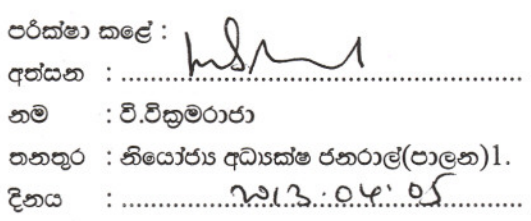 පරීක්ෂා කළේ :
අත්සන : ..........................................................
නම : වි.වික්‍රමරාජා
තනතුර : නියෝජ්‍ය අධ්‍යක්ෂ ජනරාල්(පාලන)1.
දිනය : ................2013.04.05................